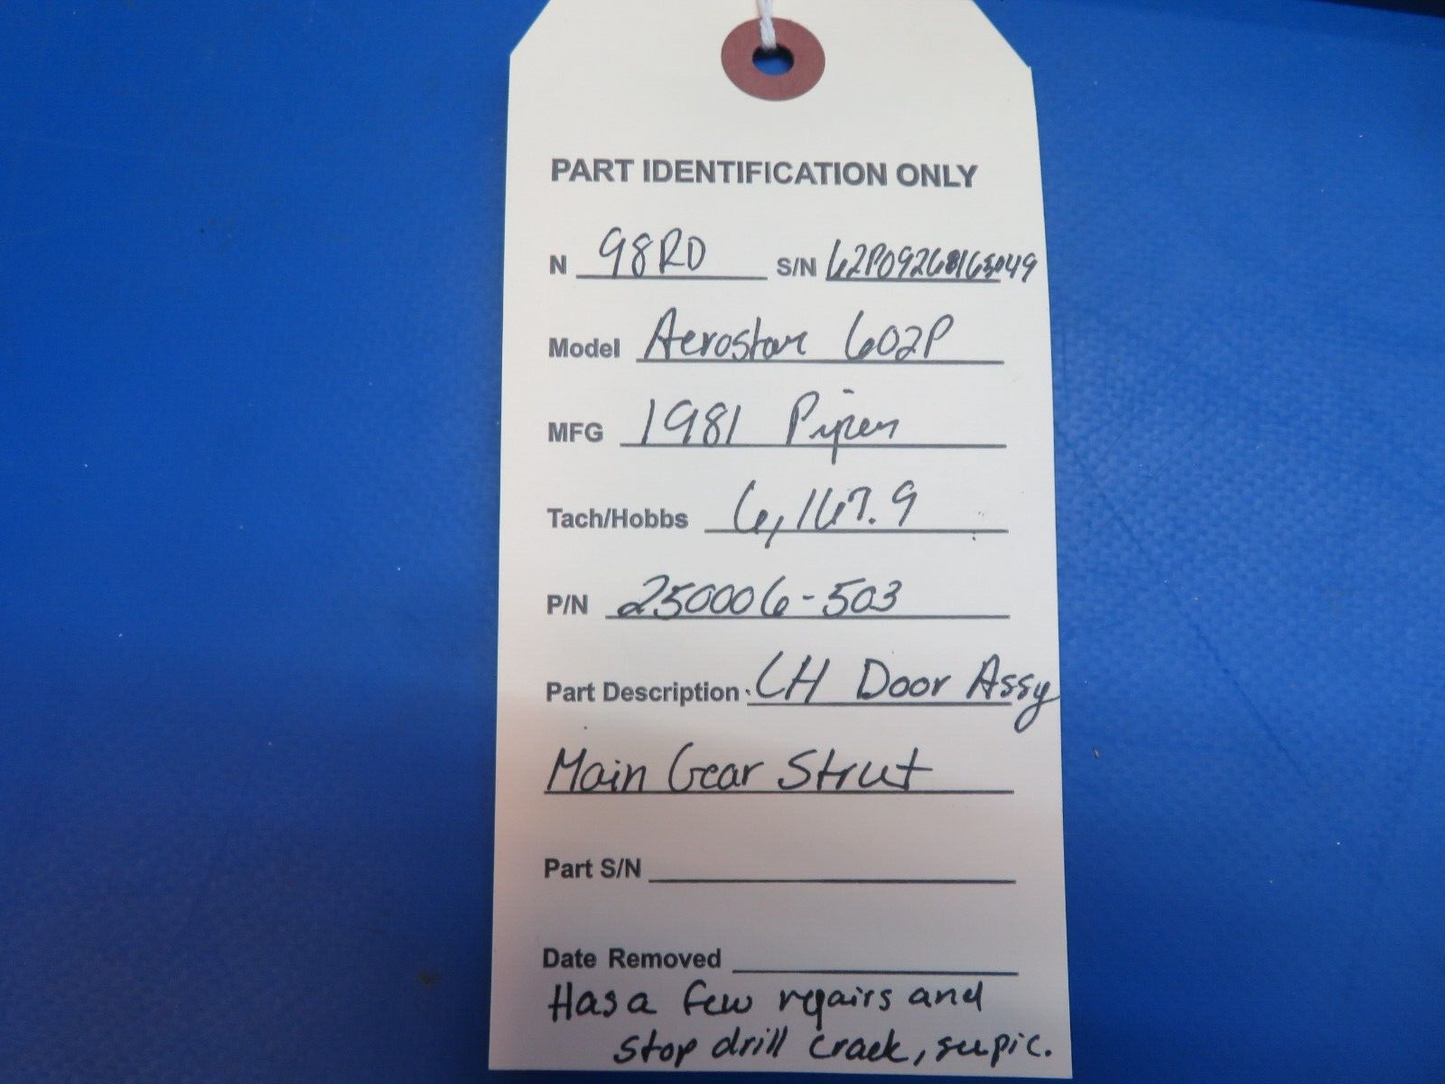 PART IDENTIFICATION ONLY
N 98RD S/N
Model Aerostar 602P
MFG 1981 Piper
Tach/Hobbs 6,167.9
P/N 250006-503
Part Description LH Door Assy
Main Gear Strut
Part S/N
Date Removed
Has a few repairs and
stop drill crack, see pic.